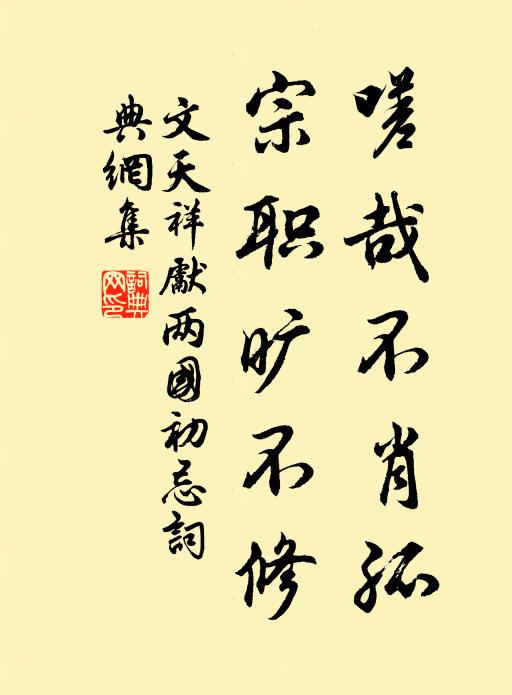 嗟哉不肖孤
宗职旷不修
文天祥獻两國初忌詞
典網集
詞典网印